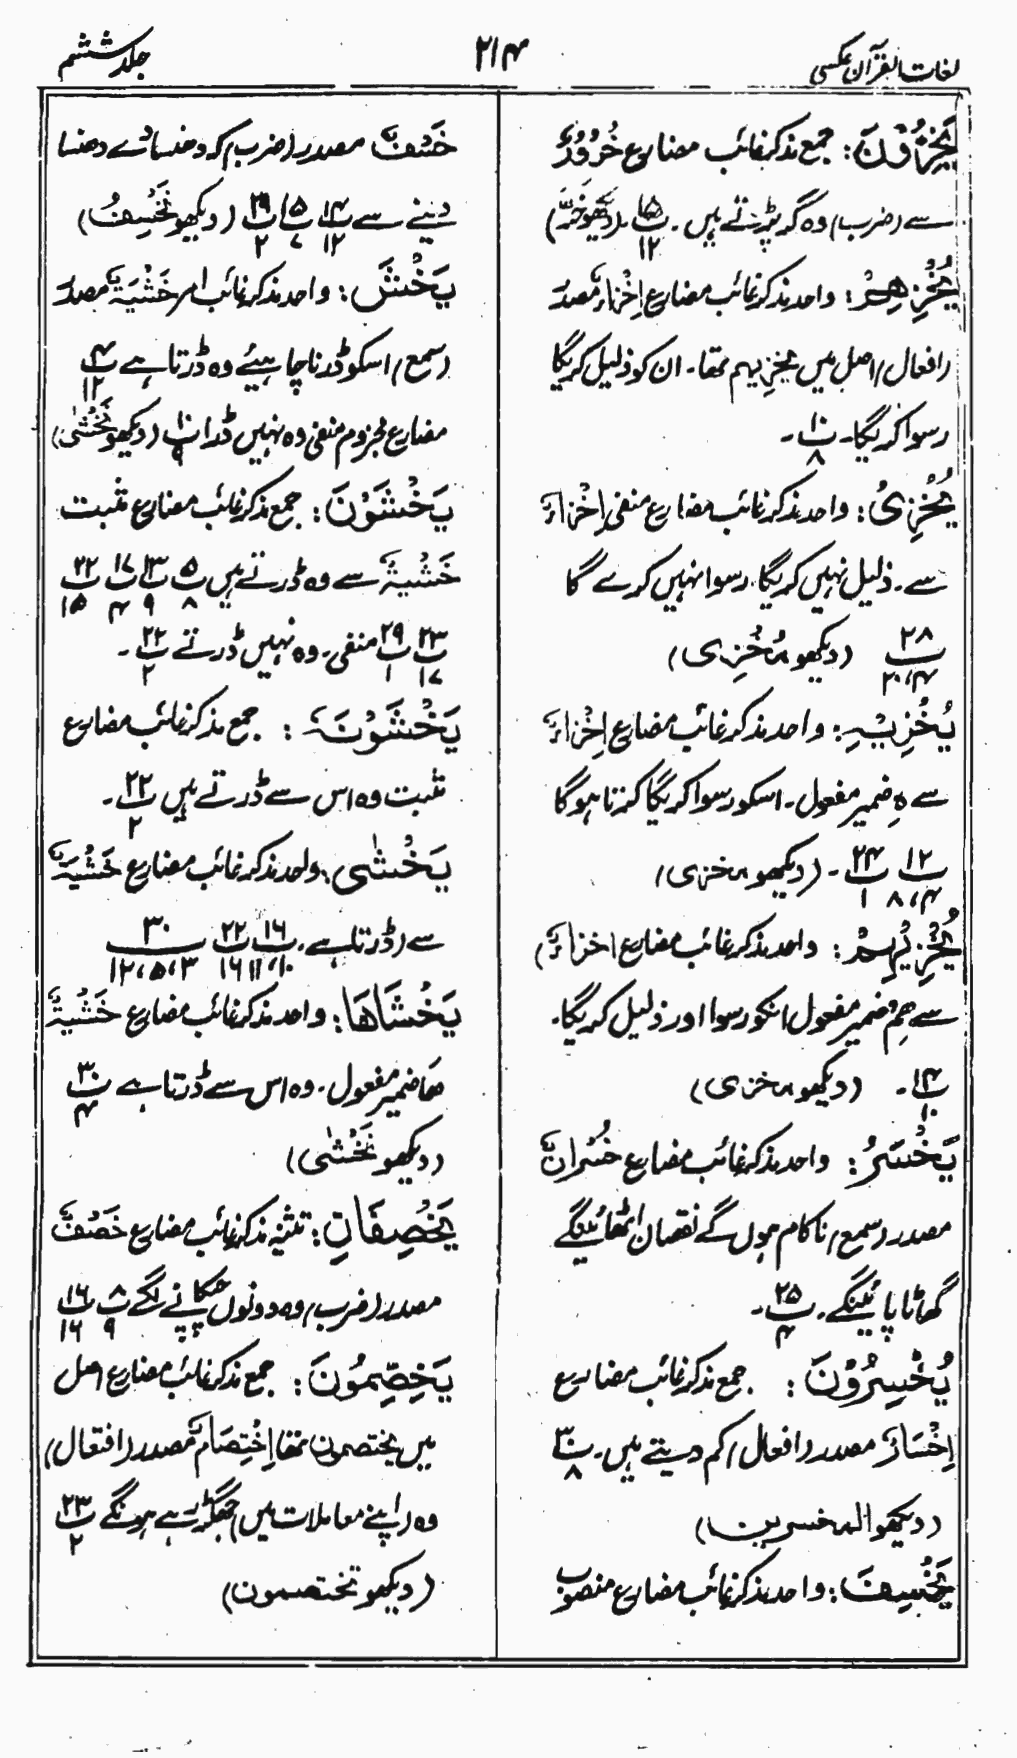 لغات القرآن عکسی
۲۱۴
جلد ششم
يَخِرُّوْنَ: جمع مذکر غائب مضارع خُرُوْرٌ
سے (ضرب) وہ گر پڑتے ہیں۔ پ۱۵/۱۲ (دیکھو خَرَّ)
يُخْزِهِمْ: واحد مذکر غائب مضارع اِخْزَاءٌ مصدر
(افعال) اصل میں یخزیہم تھا۔ ان کو ذلیل کریگا
رسوا کریگا۔ پ۱۰/۸ ۔
يُخْزِیُ: واحد مذکر غائب مضارع منفی اِخْزَاءٌ
سے۔ ذلیل نہیں کریگا، رسوا نہیں کرے گا
پ۲۸/۲۰،۴ (دیکھو مُخْزِی)
يُخْزِيْهِ: واحد مذکر غائب مضارع اِخْزَاءٌ
سے ہِ ضمیر مفعول۔ اسکو رسوا کریگا کرتا ہوگا
پ۱۲/۸،۴ پ۲۴/۱ ۔ (دیکھو مخزی)
يُخْزِيْهِمْ: واحد مذکر غائب مضارع (اخزاءٌ)
سے ھِمْ ضمیر مفعول انکو رسوا اور ذلیل کریگا۔
پ۱۴/۱۰ ۔ (دیکھو مخزی)
يَخْسَرُ: واحد مذکر غائب مضارع خُسْرَانٌ
مصدر (سمع) ناکام ہوں گے نقصان اٹھائینگے
گھاٹا پائینگے۔ پ۲۵/۴ ۔
يُخْسِرُوْنَ: جمع مذکر غائب مضارع
اِخْسَارٌ مصدر (افعال) کم دیتے ہیں۔ پ۳۰/۸
(دیکھو المخسرین)
يَخْسِفَ: واحد مذکر غائب مضارع منصوب
خَسْفٌ مصدر (ضرب) کہ دھنسا دے دھنسا
دینے سے پ۱۴/۱۲ پ۱۵/۷ پ۲۹/۲ (دیکھو نَخْسِفُ)
يَخْشَ: واحد مذکر غائب امر خَشْيَةٌ مصدر
(سمع) اسکو ڈرنا چاہیئے وہ ڈرتا ہے پ۴/۱۲
مضارع مجزوم منفی وہ نہیں ڈرا پ۱۰/۹ (دیکھو تَخْشٰی)
يَخْشَوْنَ: جمع مذکر غائب مضارع مثبت
خَشْيَةٌ سے وہ ڈرتے ہیں پ۵/۸ پ۱۳/۹ پ۱۷/۴ پ۲۲/۱۵
پ۲۳/۱۷ پ۲۹/۱ منفی۔ وہ نہیں ڈرتے پ۲۲/۲ ۔
يَخْشَوْنَہٗ: جمع مذکر غائب مضارع
مثبت وہ اس سے ڈرتے ہیں پ۲۲/۲ ۔
يَخْشٰی: واحد مذکر غائب مضارع خَشْيَةٌ
سے (ڈرتا ہے۔ پ۱۶/۱۱،۱۰ پ۲۲/۱۶ ۳۰/۱۲،۵،۳
يَخْشَاهَا: واحد مذکر غائب مضارع خَشْيَةٌ
ھا ضمیر مفعول۔ وہ اس سے ڈرتا ہے پ۳۰/۴
(دیکھو تَخْشٰی)
يَخْصِفَانِ: تثنیہ مذکر غائب مضارع خَصْفٌ
مصدر (ضرب) وہ دونوں چپکانے لگے پ۸/۹ پ۱۶/۱۶
يَخِصِّمُوْنَ: جمع مذکر غائب مضارع اصل
میں یختصمون تھا اِخْتِصَامٌ مصدر (افتعال)
وہ (اپنے معاملات میں) جھگڑ رہے ہونگے پ۲۳/۲
(دیکھو تختصمون)